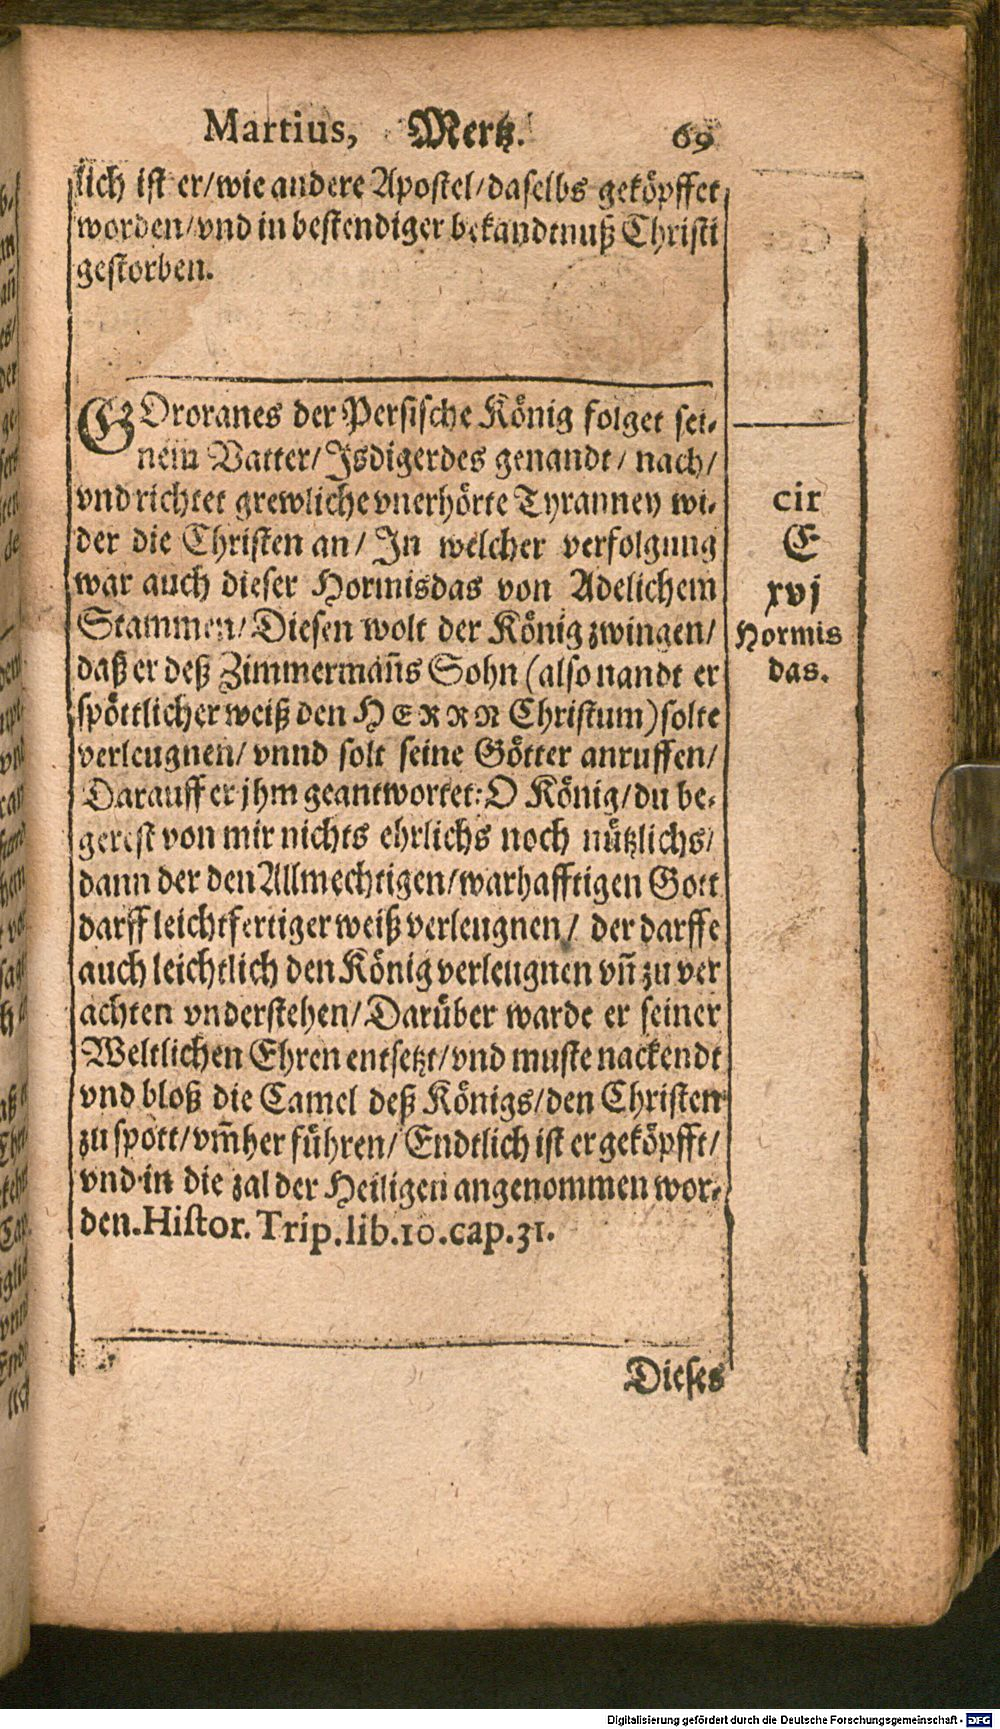 Martius, Mertz. 69
lich ist er/wie andere Apostel/daselbs geköpffet
worden/vnd in bestendiger bekandtnuß Christi
gestorben.
GOroranes der Persische König folget sei-
nem Vatter/Isdigerdes genandt/nach/
vnd richtet grewliche vnerhörte Tyranney wi-
der die Christen an/In welcher verfolgung
war auch dieser Hormisdas von Adelichem
Stammen/Diesen wolt der König zwingen/
daß er deß Zimmermañs Sohn (also nandt er
spöttlicher weiß den HERRN Christum) solte
verleugnen/vnnd solt seine Götter anruffen/
Darauff er jhm geantwortet: O König/du be-
gerest von mir nichts ehrlichs noch nützlichs/
dann der den Allmechtigen/warhafftigen Gott
darff leichtfertiger weiß verleugnen/der darffe
auch leichtlich den König verleugnen vñ zu ver
achten vnderstehen/Darüber warde er seiner
Weltlichen Ehren entsetzt/vnd muste nackendt
vnd bloß die Camel deß Königs/den Christen
zu spott/vm̃her führen/Endtlich ist er geköpfft/
vnd in die zal der Heiligen angenommen wor-
den. Histor. Trip. lib. 10. cap. 31.
cir
E
xvj
Hormis
das.
Dieses
Digitalisierung gefördert durch die Deutsche Forschungsgemeinschaft - DFG